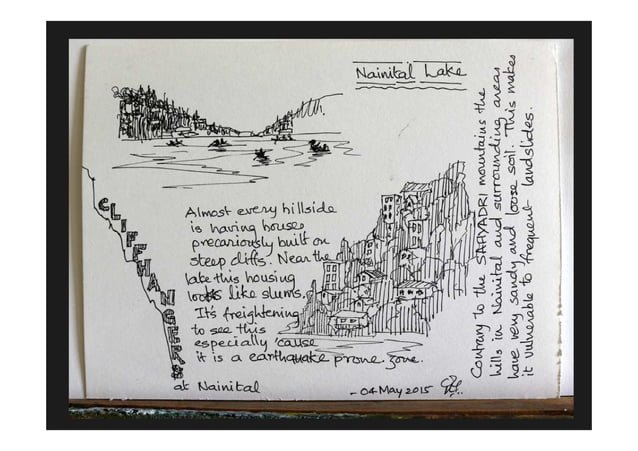 Nainital Lake
CLIFFHANGERS
at Nainital
Almost every hillside
is having houses
precariously built on
steep cliffs. Near the
lake this housing
looks like slums.
It's freightening
to see this
especially 'cause
it is a earthquake prone zone.
- 04 May 2015
Contrary to the SAHYADRI mountains the
hills in Nainital and surrounding areas
have very sandy and loose soil. This makes
it vulnerable to frequent landslides.